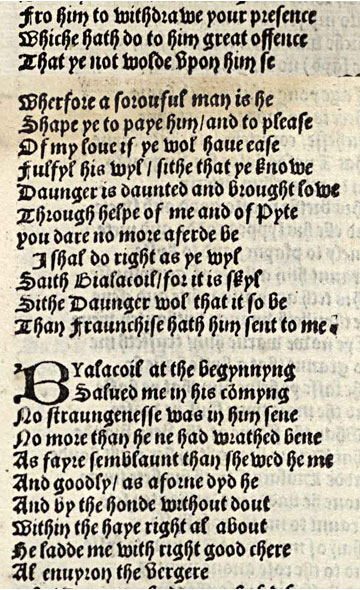 Fro him to withdrawe your presence
Whiche hath do to him great offence
That ye not wolde vpon him se
Wherfore a sorouful man is he
Shape ye to paye him/and to please
Of my loue if ye wol haue ease
Fulfyl his wyl/ sithe that ye knowe
Daunger is daunted and brought lowe
Through helpe of me and of Pyte
you dare no more aferde be
I shal do right as ye wyl
Saith Bialacoil/for it is skyl
Sithe Daunger wol that it so be
Than Fraunchise hath him sent to me.
BYalacoil at the begynnyng
Salued me in his cõmyng
No straungenesse was in him sene
No more than he ne had wrathed bene
As fayre semblaunt than shewed he me
And goodly/ as aforne dyd he
And by the honde without dout
Within the haye right al about
He ladde me with right good chere
Al enuyron the vergere